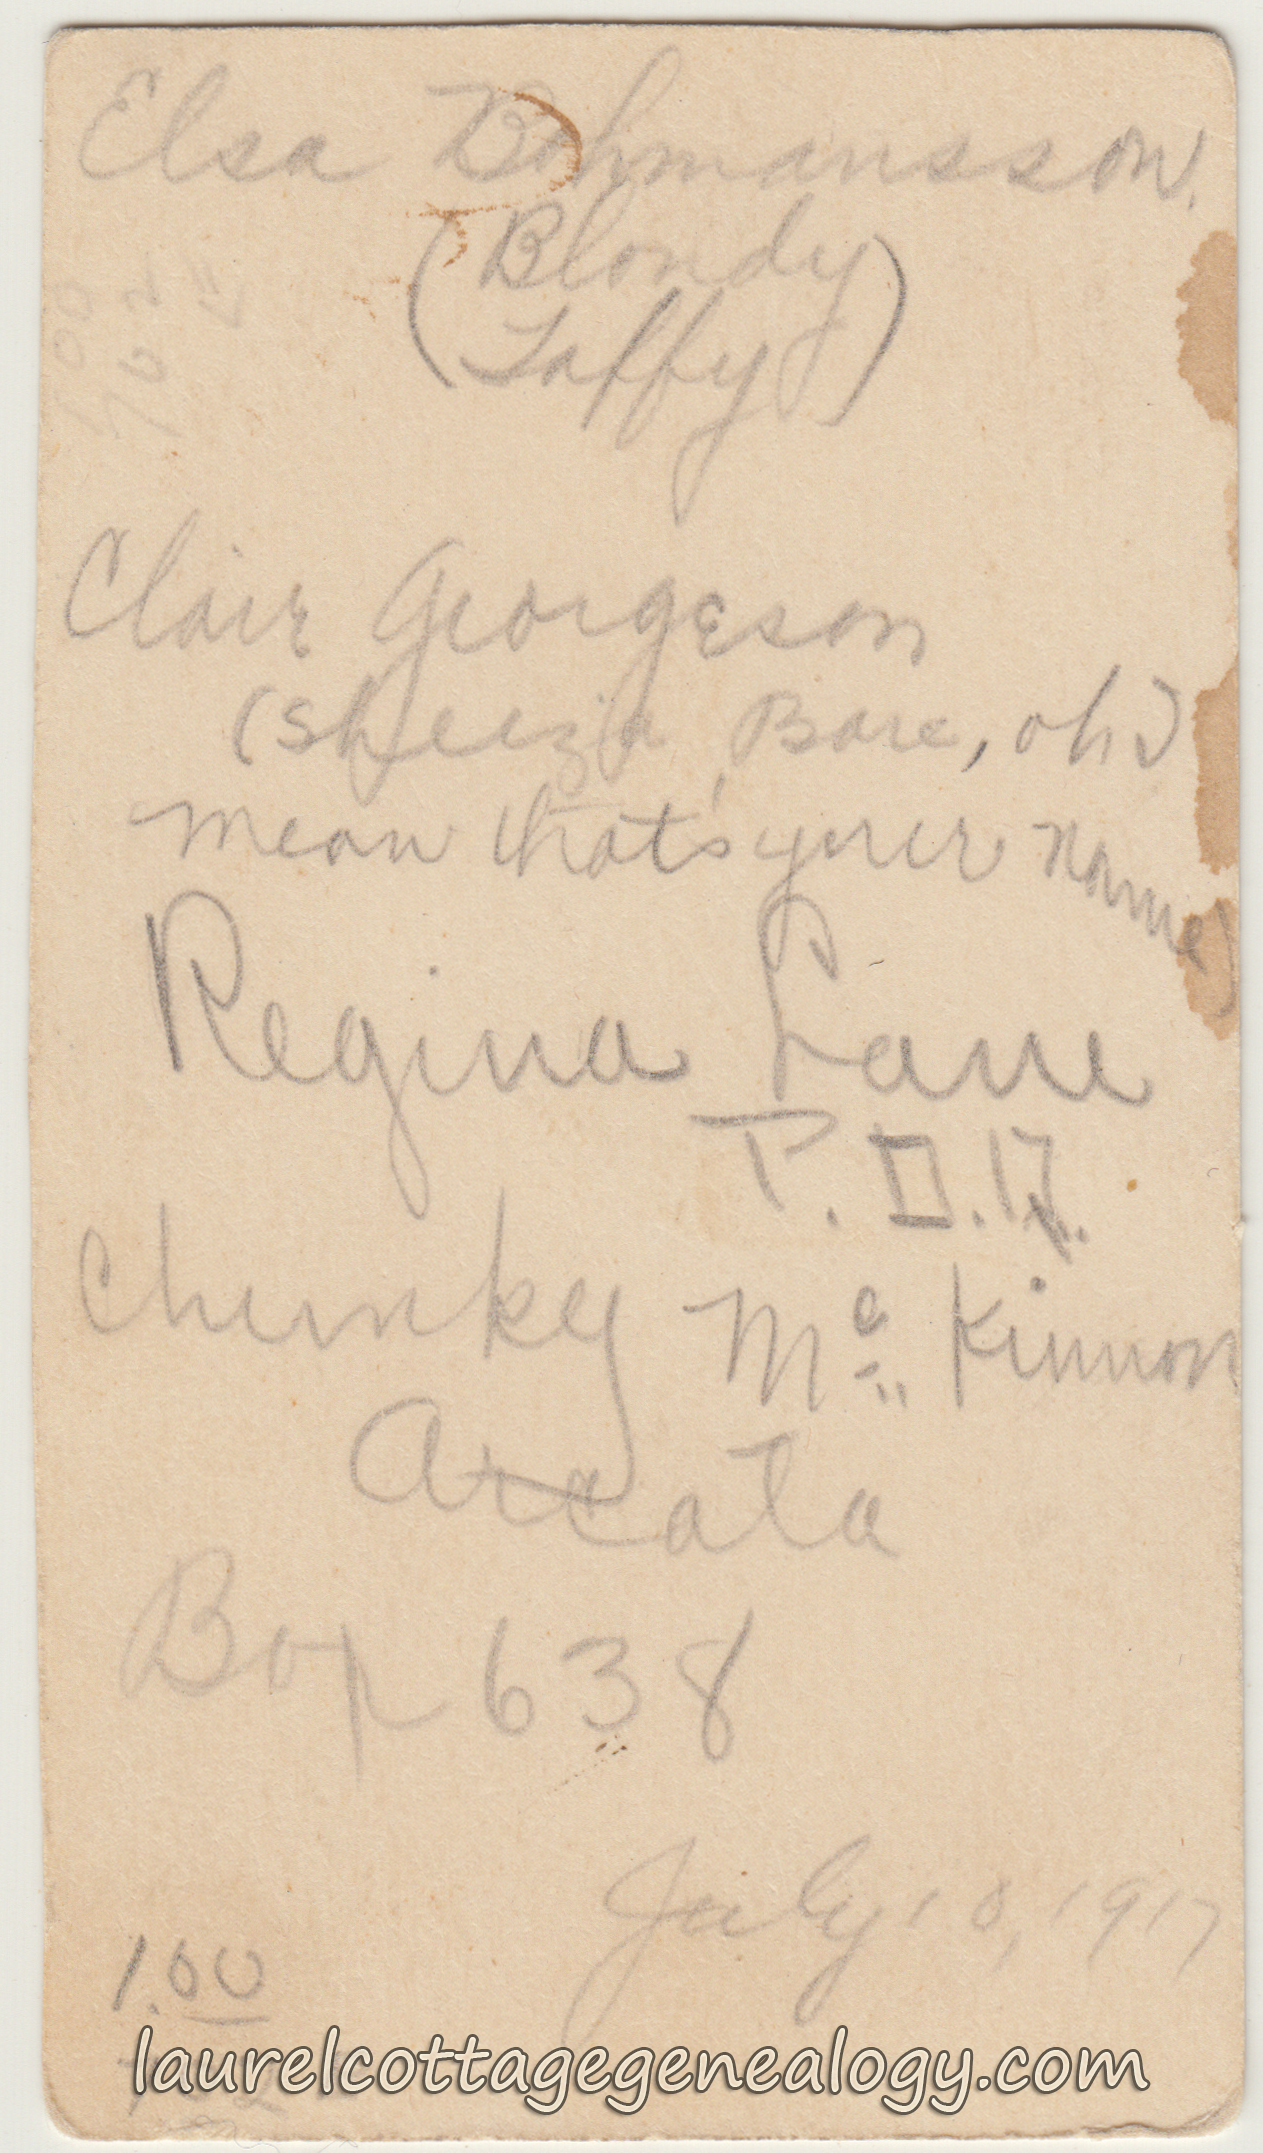 Elsa Bohmansson.
(Blondy
Taffy)
Clair Georgeson
(Sheeza Bare, oh I
mean that's your name)
Regina Lane
P. D. Q.
Chunky Mc Kinnon
Arcata
Box 638
July 10, 1917
1.00
laurelcottagegenealogy.com